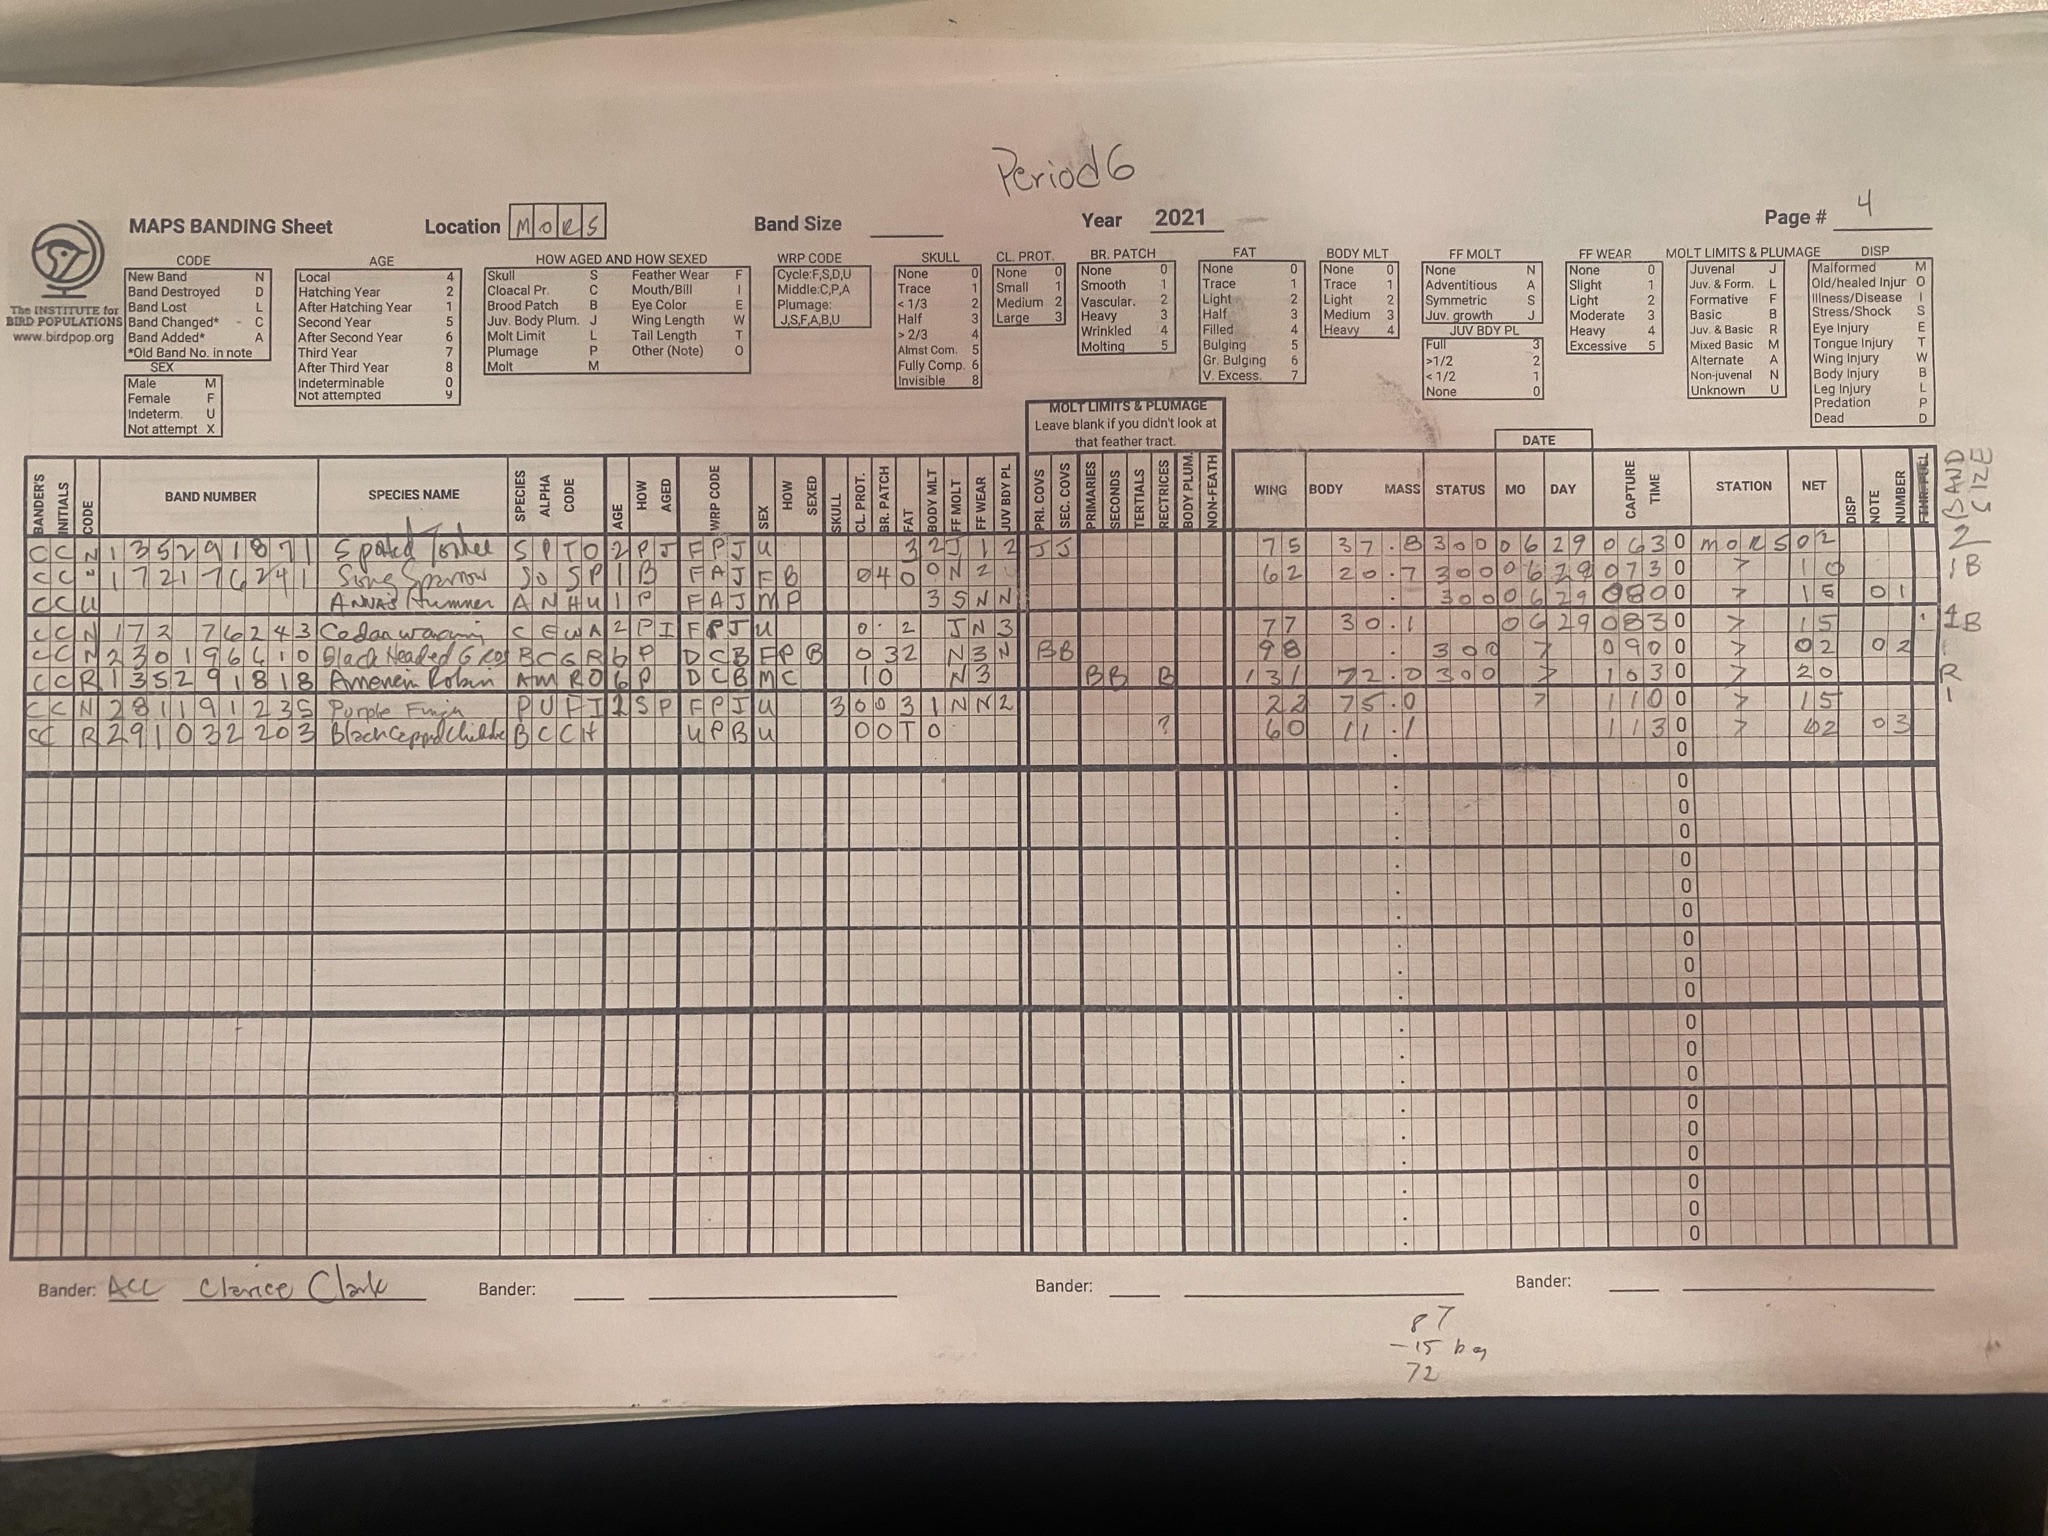 Period 6
MAPS BANDING Sheet Location MORS Band Size Year 2021 Page # 4
The INSTITUTE for
BIRD POPULATIONS
www.birdpop.org
CODE
New Band N
Band Destroyed D
Band Lost L
Band Changed* - C
Band Added* A
*Old Band No. in note
SEX
Male M
Female F
Indeterm. U
Not attempt X
AGE
Local 4
Hatching Year 2
After Hatching Year 1
Second Year 5
After Second Year 6
Third Year 7
After Third Year 8
Indeterminable 0
Not attempted 9
HOW AGED AND HOW SEXED
Skull S Feather Wear F
Cloacal Pr. C Mouth/Bill I
Brood Patch B Eye Color E
Juv. Body Plum. J Wing Length W
Molt Limit L Tail Length T
Plumage P Other (Note) O
Molt M
WRP CODE
Cycle:F,S,D,U
Middle:C,P,A
Plumage:
J,S,F,A,B,U
SKULL
None 0
Trace 1
< 1/3 2
Half 3
> 2/3 4
Almst Com. 5
Fully Comp. 6
Invisible 8
CL. PROT.
None 0
Small 1
Medium 2
Large 3
BR. PATCH
None 0
Smooth 1
Vascular. 2
Heavy 3
Wrinkled 4
Molting 5
FAT
None 0
Trace 1
Light 2
Half 3
Filled 4
Bulging 5
Gr. Bulging 6
V. Excess. 7
BODY MLT
None 0
Trace 1
Light 2
Medium 3
Heavy 4
FF MOLT
None N
Adventitious A
Symmetric S
Juv. growth J
JUV BDY PL
Full 3
>1/2 2
< 1/2 1
None 0
FF WEAR
None 0
Slight 1
Light 2
Moderate 3
Heavy 4
Excessive 5
MOLT LIMITS & PLUMAGE
Juvenal J
Juv. & Form. L
Formative F
Basic B
Juv. & Basic R
Mixed Basic M
Alternate A
Non-juvenal N
Unknown U
DISP
Malformed M
Old/healed Injur O
Illness/Disease I
Stress/Shock S
Eye Injury E
Tongue Injury T
Wing Injury W
Body Injury B
Leg Injury L
Predation P
Dead D
MOLT LIMITS & PLUMAGE
Leave blank if you didn't look at
that feather tract.
DATE
BANDER'S INITIALS CODE BAND NUMBER SPECIES NAME SPECIES ALPHA CODE AGE HOW AGED WRP CODE SEX HOW SEXED SKULL CL. PROT. BR. PATCH FAT BODY MLT FF MOLT FF WEAR JUV BDY PL PRI. COVS SEC. COVS PRIMARIES SECONDS TERTIALS RECTRICES BODY PLUM. NON-FEATH WING BODY MASS STATUS MO DAY CAPTURE TIME STATION NET DISP NOTE NUMBER BAND SIZE
CC N 135291871 Spotted Towhee SPTO 2 PJ FPJ U 3 2 J 1 2 J J 75 37.8 300 06 29 063 0 MORS 02 2
CC " 172176241 Song Sparrow SOSP 1 B FAJ F B 0 4 0 0 N 2 62 20.7 300 06 29 073 0 > 10 1B
CC U Anna's Hummer ANHU 1 P FAJ M P 3 S N N . 300 06 29 080 0 > 15 01
CC N 172 76243 Cedar waxwing CEWA 2 PI FPJ U 0 . 2 J N 3 77 30.1 06 29 083 0 > 15 1B
CC N 230196410 Black Headed Gros BCGR 6 P DCB F P B 0 3 2 N 3 N B B 98 . 300 > 090 0 > 02 02
CC R 135291818 American Robin AMRO 6 P DCB M C 1 0 N 3 B B B 131 72.0 300 > 103 0 > 20 R
CC N 281191235 Purple Finch PUFI 2 SP FPJ U 3 0 0 3 1 N N 2 22 75.0 > 110 0 > 15 1
CC R 291032203 Black Capped Chickadee BCCH UPB U 0 0 T 0 ? 60 11.1 113 0 > 02 03
Bander: ACC Clarice Clark Bander: Bander: Bander:
87
-15 bag
72